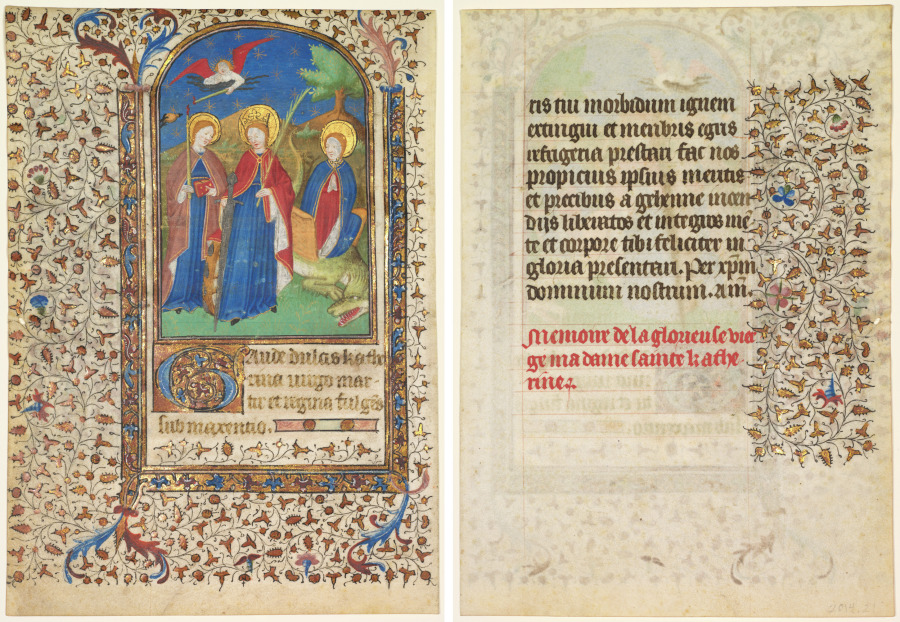 Gaude dulcis kathe
rina virgo mar-
tir et regina fulgẽs
sub maxentio.
ris tui morbidum ignem
extingui et membris egris
refrigeria prestari fac nos
propicius ipsius meritis
et precibus a gehenne incen
dijs liberatos et integros me
te et corpore tibi feliciter in
gloria presentari. Per xp̃m
dominum nostrum. Am
Memoire de la glorieuse vier
ge ma dame sainte kathe
rine